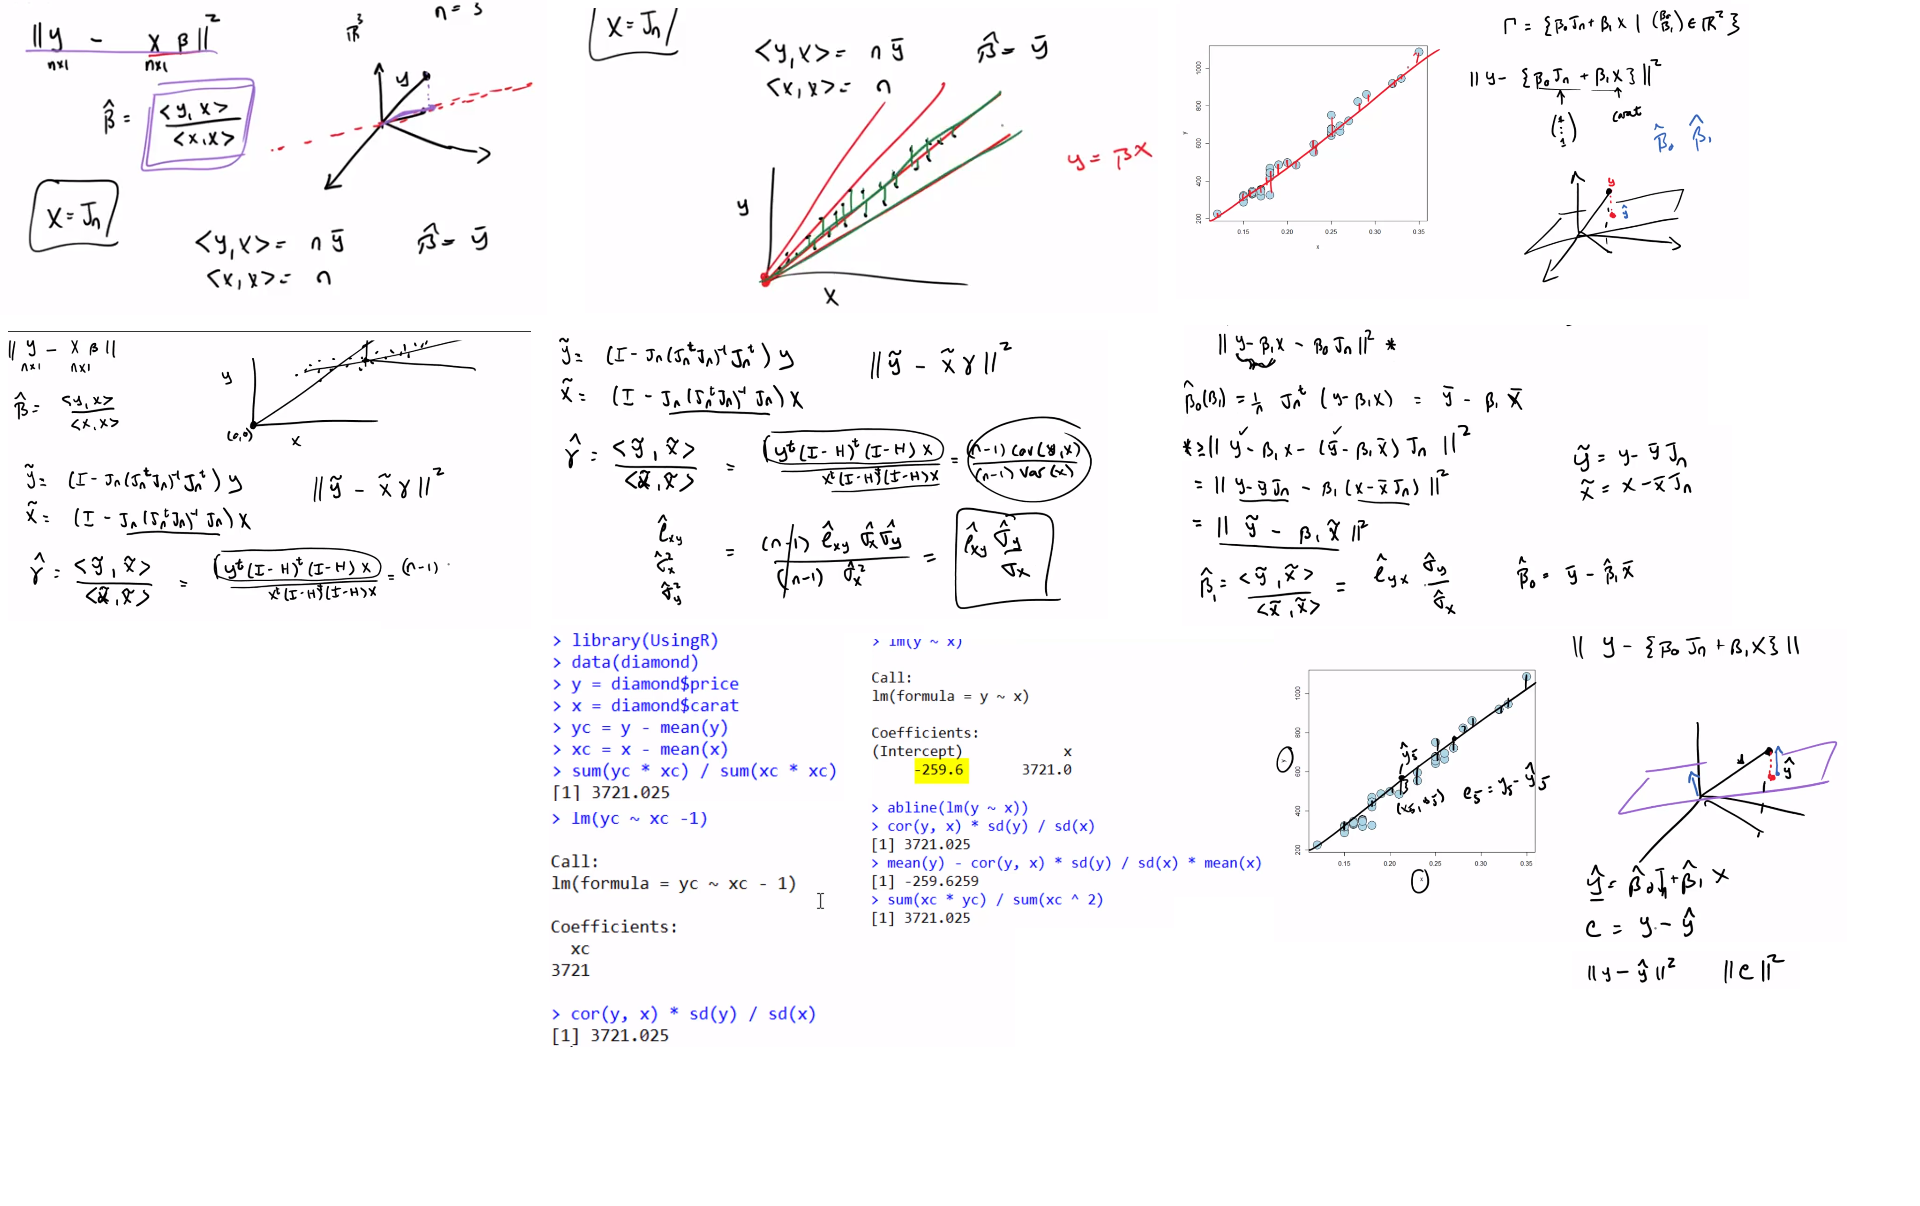 n = 3
ℝ³
‖ y - x β ‖²
n×1 n×1
β̂ = <y, x> / <x, x>
y
x = Jₙ
<y, x> = n ȳ β̂ = ȳ
<x, x> = n
x = Jₙ
<y, x> = n ȳ β̂ = ȳ
<x, x> = n
y = βx
y
x
1000
800
600
400
200
y
0.15 0.20 0.25 0.30 0.35
x
Γ = {β₀Jₙ + β₁x | (β₀ β₁) ∈ ℝ²}
‖ y - {β₀Jₙ + β₁x} ‖²
(1 ⋮ 1) carat
β̂₀ β̂₁
y
ŷ
‖ y - x β ‖
n×1 n×1
β̂ = <y, x> / <x, x>
y
(0,0) x
ỹ = (I - Jₙ(JₙᵗJₙ)⁻¹Jₙᵗ) y ‖ ỹ - x̃ γ ‖²
x̃ = (I - Jₙ(JₙᵗJₙ)⁻¹Jₙ) x
γ̂ = <ỹ, x̃> / <x̃, x̃> = yᵗ(I-H)ᵗ(I-H)x / xᵗ(I-H)ᵗ(I-H)x = (n-1)
ỹ = (I - Jₙ(JₙᵗJₙ)⁻¹Jₙᵗ) y ‖ ỹ - x̃ γ ‖²
x̃ = (I - Jₙ(JₙᵗJₙ)⁻¹Jₙ) x
γ̂ = <ỹ, x̃> / <x̃, x̃> = yᵗ(I-H)ᵗ(I-H)x / xᵗ(I-H)ᵗ(I-H)x = (n-1) cov(y,x) / (n-1) var(x)
ρ̂xy
σ̂x²
σ̂y²
= (n-1) ρ̂xy σ̂x σ̂y / (n-1) σ̂x² = ρ̂xy σ̂y / σ̂x
‖ y - β₁x - β₀Jₙ ‖² *
β̂₀(β₁) = 1/n Jₙᵗ (y - β₁x) = ȳ - β₁ x̄
* ≥ ‖ y - β₁x - (ȳ - β₁x̄) Jₙ ‖²
= ‖ y - ȳJₙ - β₁(x - x̄Jₙ) ‖²
= ‖ ỹ - β₁ x̃ ‖²
ỹ = y - ȳJₙ
x̃ = x - x̄Jₙ
β̂₁ = <ỹ, x̃> / <x̃, x̃> = ρ̂yx σ̂y / σ̂x β̂₀ = ȳ - β̂₁x̄
> library(UsingR)
> data(diamond)
> y = diamond$price
> x = diamond$carat
> yc = y - mean(y)
> xc = x - mean(x)
> sum(yc * xc) / sum(xc * xc)
[1] 3721.025
> lm(yc ~ xc -1)
Call:
lm(formula = yc ~ xc - 1)
Coefficients:
xc
3721
> cor(y, x) * sd(y) / sd(x)
[1] 3721.025
> lm(y ~ x)
Call:
lm(formula = y ~ x)
Coefficients:
(Intercept) x
-259.6 3721.0
> abline(lm(y ~ x))
> cor(y, x) * sd(y) / sd(x)
[1] 3721.025
> mean(y) - cor(y, x) * sd(y) / sd(x) * mean(x)
[1] -259.6259
> sum(xc * yc) / sum(xc ^ 2)
[1] 3721.025
1000
800
600
400
200
0.15 0.20 0.25 0.30 0.35
ŷ₅
(x₅, y₅) e₅ = y₅ - ŷ₅
‖ y - {β₀Jₙ + β₁x} ‖
ŷ
ŷ = β̂₀Jₙ + β̂₁ x
e = y - ŷ
‖ y - ŷ ‖² ‖ e ‖²